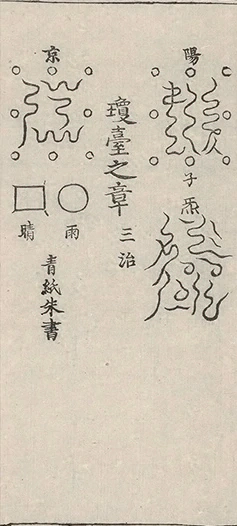 陽
子炁
瓊臺之章
三治
京
雨
晴
青紙朱書